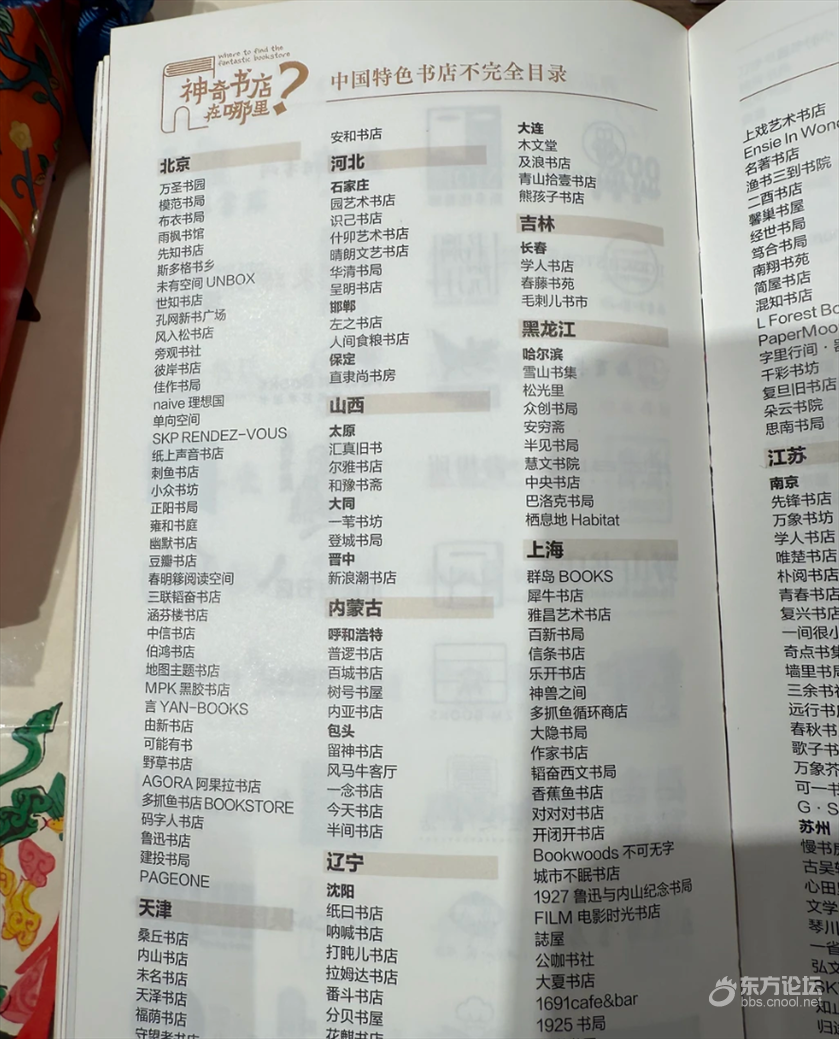 where to find the
fantastic bookstore
神奇书店
在哪里?
中国特色书店不完全目录
北京
万圣书园
模范书局
布衣书局
雨枫书馆
先知书店
斯多格书乡
未有空间 UNBOX
世知书店
孔网新书广场
风入松书店
旁观书社
彼岸书店
佳作书局
naive 理想国
单向空间
SKP RENDEZ-VOUS
纸上声音书店
刺鱼书店
小众书坊
正阳书局
雍和书庭
幽默书店
豆瓣书店
春明簃阅读空间
三联韬奋书店
涵芬楼书店
中信书店
伯鸿书店
地图主题书店
MPK 黑胶书店
言 YAN-BOOKS
由新书店
可能有书
野草书店
AGORA 阿果拉书店
多抓鱼书店 BOOKSTORE
码字人书店
鲁迅书店
建投书局
PAGEONE
天津
桑丘书店
内山书店
未名书店
天泽书店
福荫书店
守望者书店
安和书店
河北
石家庄
园艺术书店
识己书店
什卯艺术书店
晴朗文艺书店
华清书局
呈明书店
邯郸
左之书店
人间食粮书店
保定
直隶尚书房
山西
太原
汇真旧书
尔雅书店
和豫书斋
大同
一苇书坊
登城书局
晋中
新浪潮书店
内蒙古
呼和浩特
普逻书店
百城书店
树号书屋
内亚书店
包头
留神书店
风马牛客厅
一念书店
今天书店
半间书店
辽宁
沈阳
纸日书店
呐喊书店
打盹儿书店
拉姆达书店
番斗书店
分贝书屋
花麒书店
大连
木文堂
及浪书店
青山拾壹书店
熊孩子书店
吉林
长春
学人书店
春藤书苑
毛刺儿书市
黑龙江
哈尔滨
雪山书集
松光里
众创书局
安穷斋
半见书局
慧文书院
中央书店
巴洛克书局
栖息地 Habitat
上海
群岛 BOOKS
犀牛书店
雅昌艺术书店
百新书局
信条书店
乐开书店
神兽之间
多抓鱼循环商店
大隐书局
作家书店
韬奋西文书局
香蕉鱼书店
对对对书店
开闭开书店
Bookwoods 不可无字
城市不眠书店
1927 鲁迅与内山纪念书局
FILM 电影时光书店
誌屋
公咖书社
大夏书店
1691cafe&bar
1925 书局
上戏艺术书店
Ensie In Won
名著书店
渔书三到书院
二酉书店
馨巢书屋
经世书局
笃合书局
南翔书苑
简屋书店
混知书店
L Forest Bo
PaperMoo
字里行间·
千彩书坊
复旦旧书店
朵云书院
思南书局
江苏
南京
先锋书店
万象书坊
学人书店
唯楚书店
朴阅书店
青春书店
复兴书店
一间很小
奇点书集
墙里书局
三余书社
远行书店
春秋书
歌子书
万象芥
可一书
G·S
苏州
慢书房
古吴轩
心田
文学
琴川
弘文
东方论坛
bbs.cnool.net